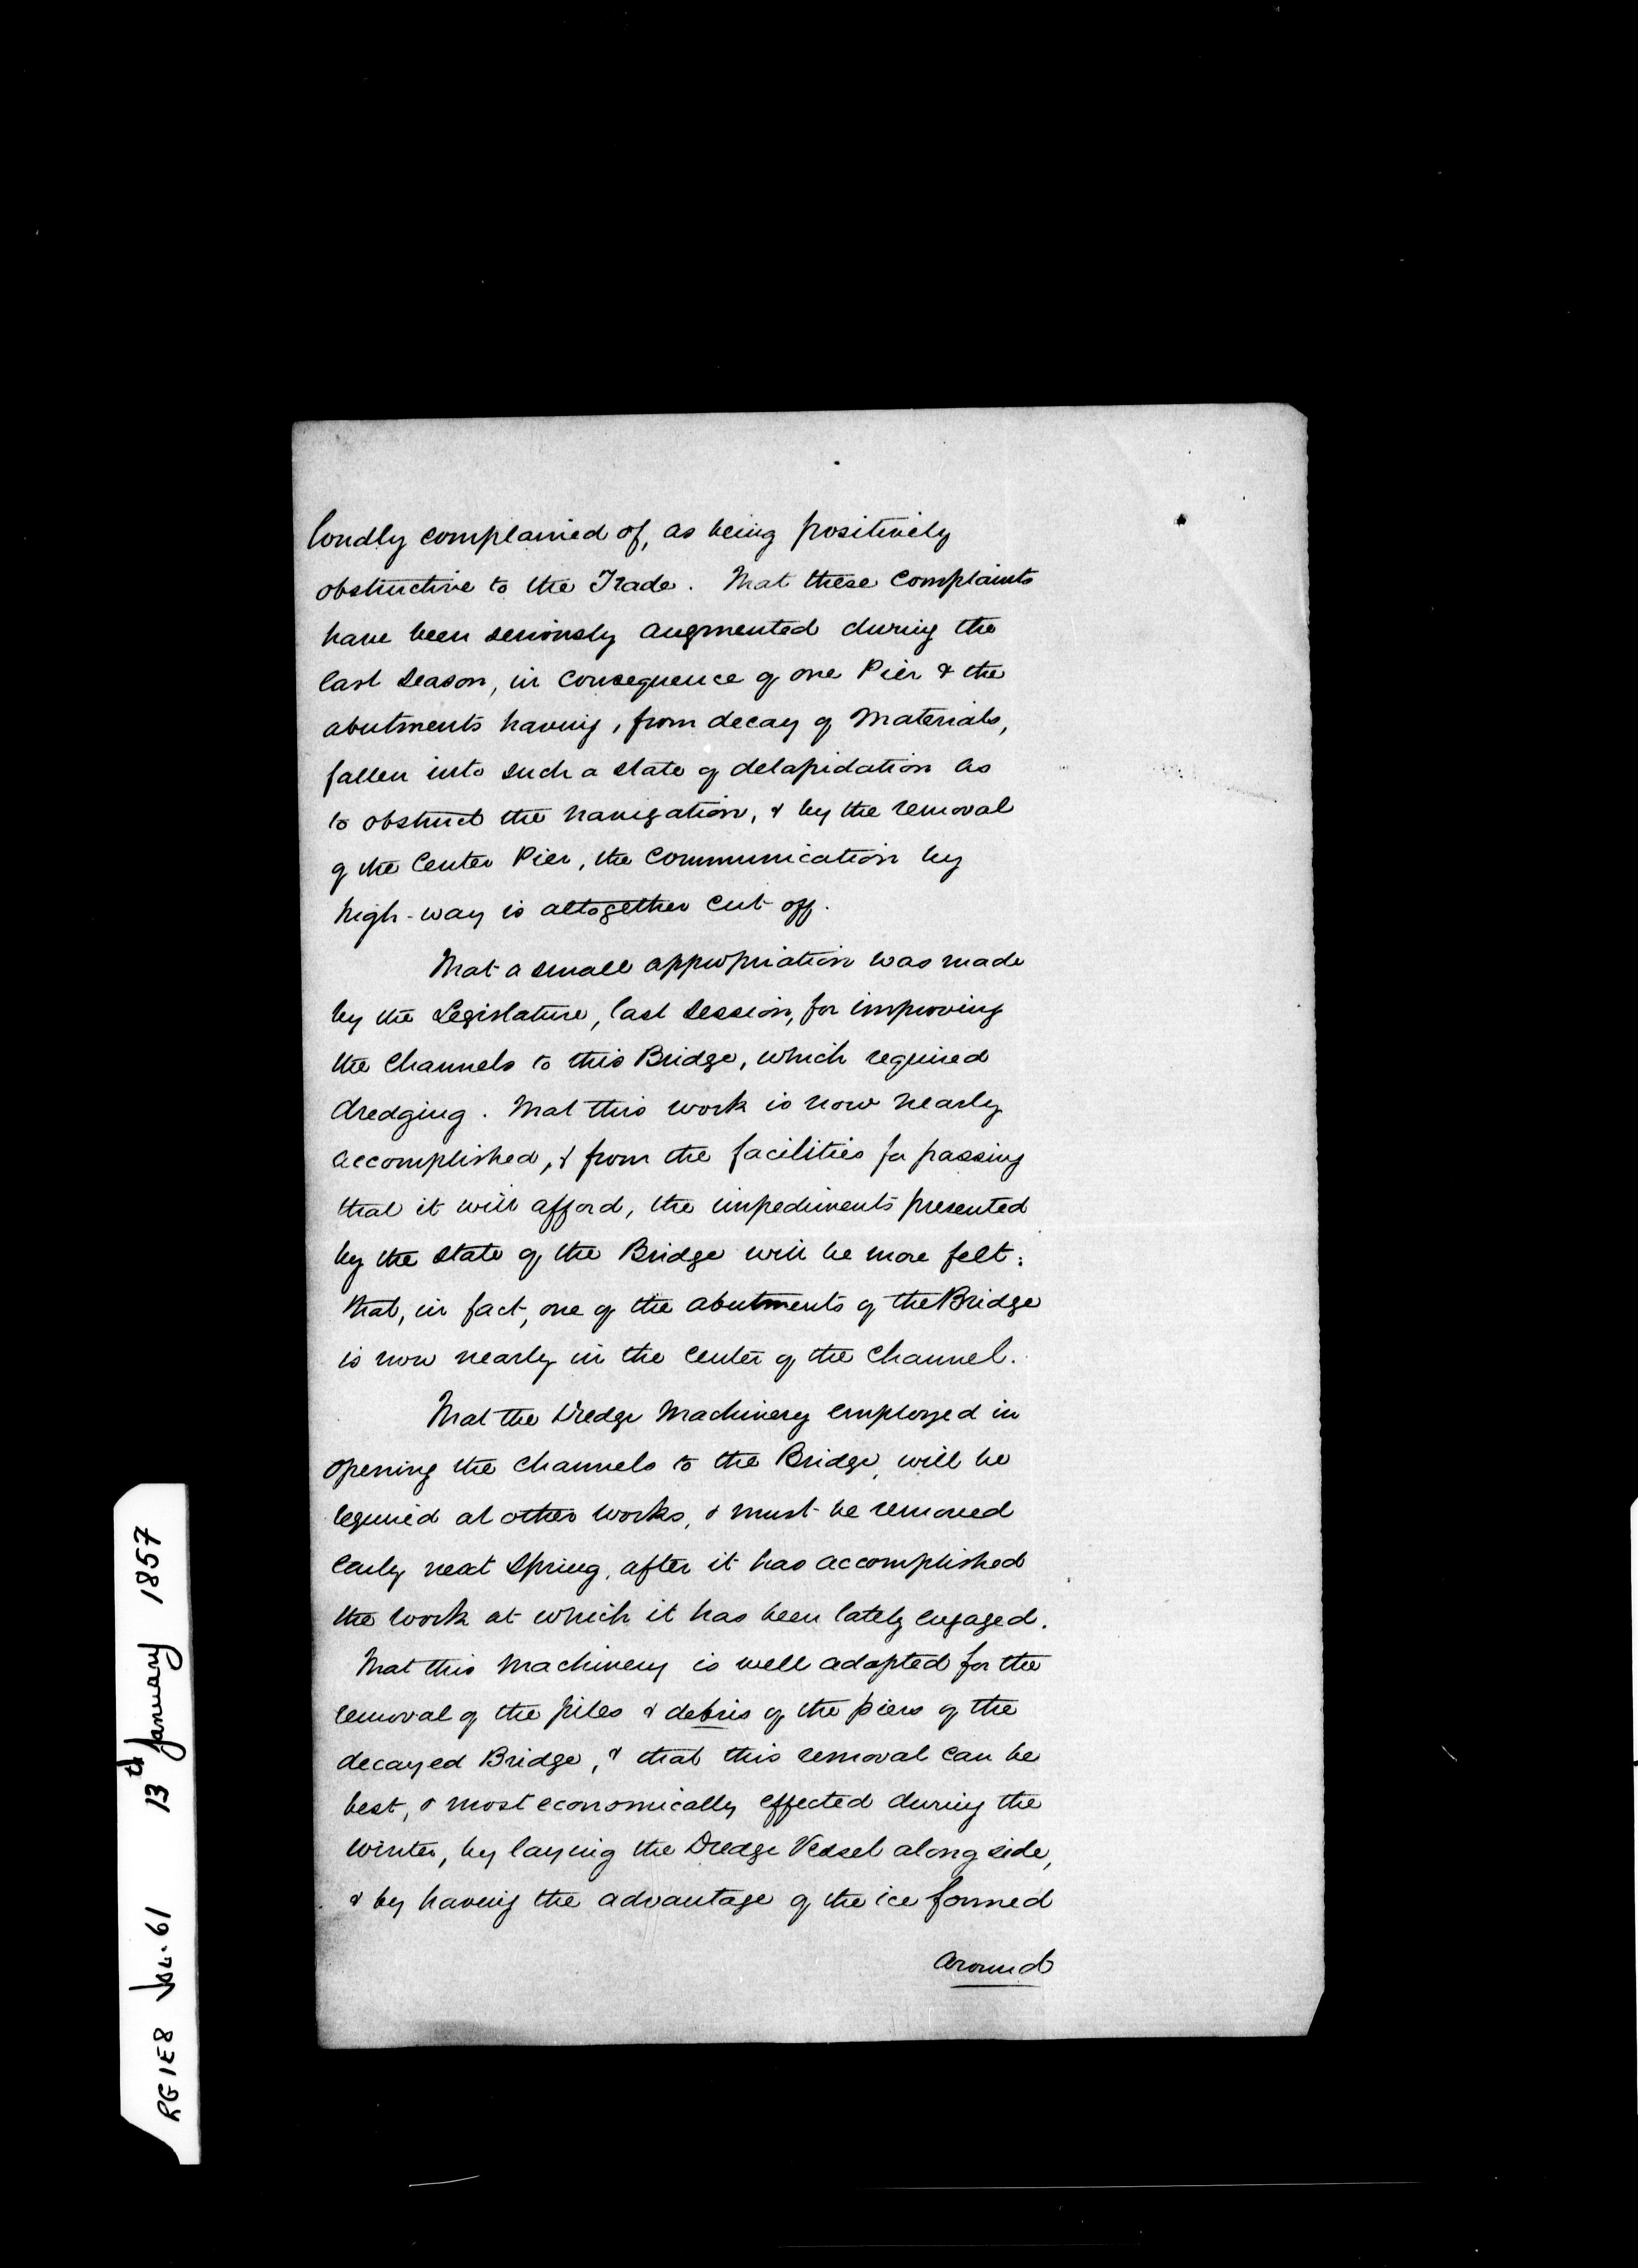 loudly complained of, as being positively
obstructive to the Trade. That these complaints
have been seriously augmented during the
last season, in consequence of one Pier & the
abutments having, from decay of Materials,
fallen into such a state of delapidation as
to obstruct the navigation, & by the removal
of the Center Pier, the communication by
high-way is altogether cut off.
That a small appropriation was made
by the Legislature, last session, for improving
the Channels to this Bridge, which required
dredging. That this work is now nearly
accomplished, & from the facilities for passing
that it will afford, the impediments presented
by the state of the Bridge will be more felt:
that, in fact, one of the abutments of the Bridge
is now nearly in the center of the Channel.
That the Dredge Machinery employed in
opening the channels to the Bridge, will be
required at other works, & must be removed
early next Spring, after it has accomplished
the work at which it has been lately engaged.
That this Machinery is well adapted for the
removal of the piles & debris of the piers of the
decayed Bridge, & that this removal can be
best, & most economically effected during the
Winter, by laying the Dredge Vessel along side,
& by having the advantage of the ice formed
around
RG1E8 Vol. 61 13th January 1857